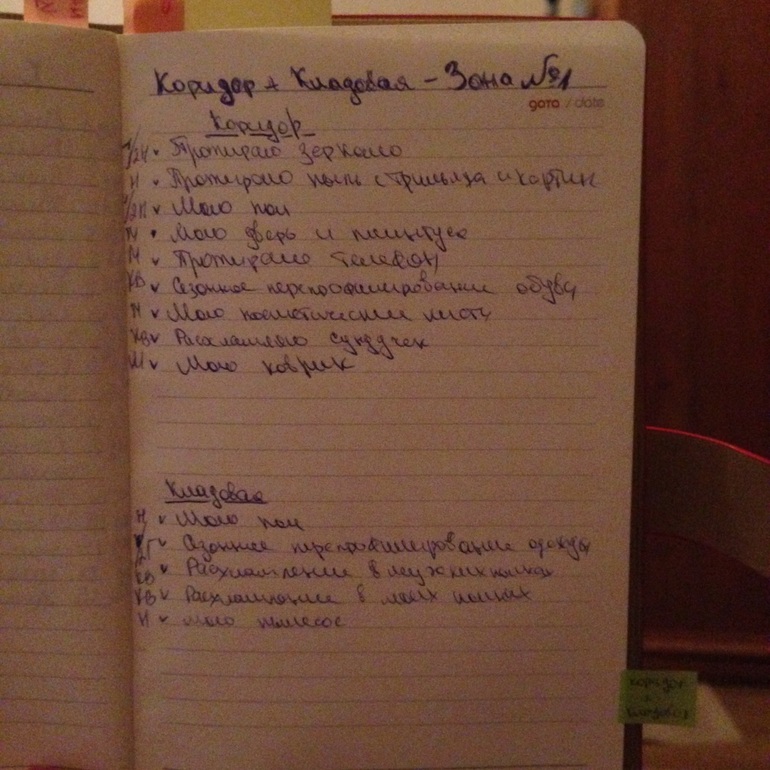 Коридор + Кладовая – Зона №1
дата / date
Коридор
Протираю зеркало
Н Протираю пыль с трильяжа и картин
Мою пол
Мою дверь и плинтуса
М Протираю телефон
КВ Сезонное перепрофилирование обуви
Мою косметические
КВ Расхламляю сундучек
М Мою коврик
Кладовая
Н Мою пол
Сезонное перепрофилирование одежды
КВ Расхламление в мужских полках
КВ Расхламление в моих полках
Н Мою пылесос
коридор
+
кладовая